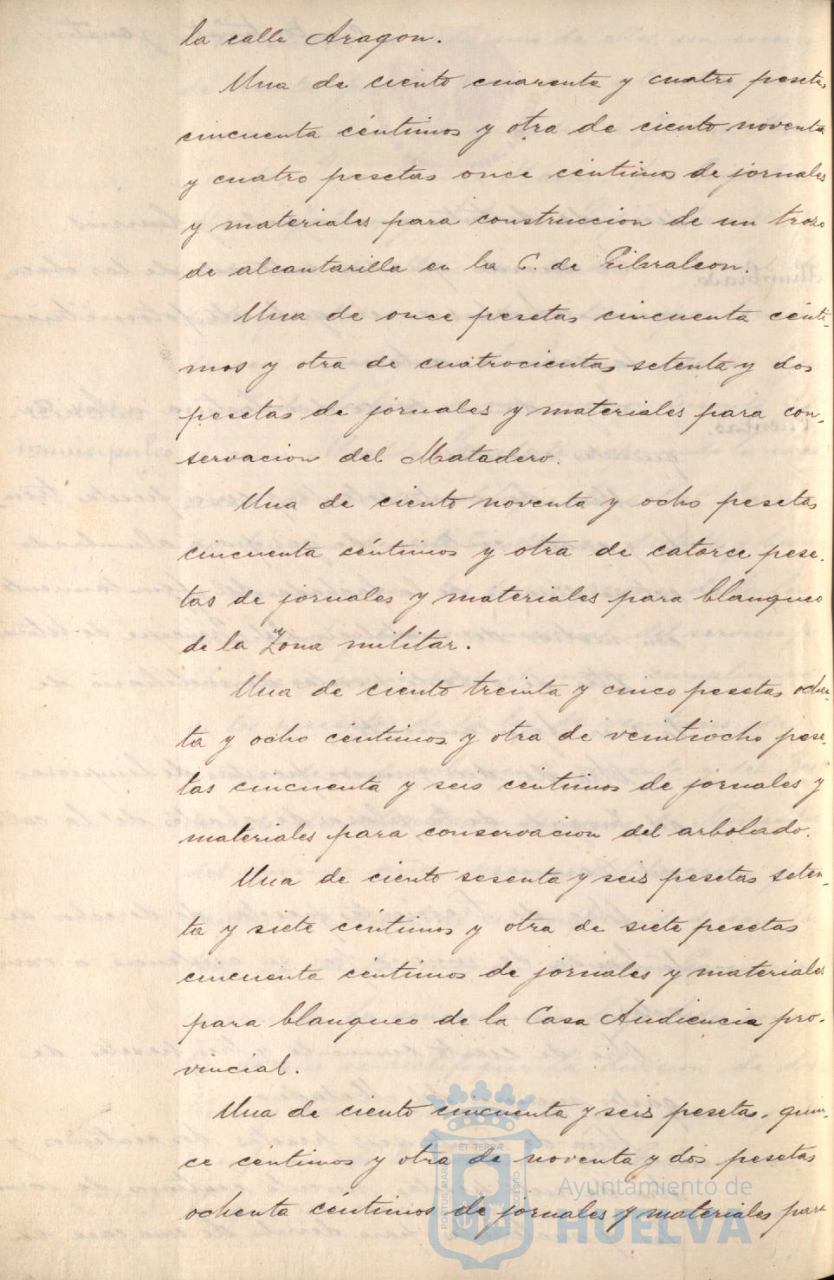 la calle Aragon.
Una de ciento cuarenta y cuatro pesetas
cincuenta céntimos y otra de ciento noventa
y cuatro pesetas once céntimos de jornales
y materiales para construccion de un trozo
de alcantarilla en la C. de Gibraleon.
Una de once pesetas cincuenta cénti-
mos y otra de cuatrocientas setenta y dos
pesetas de jornales y materiales para con-
servacion del Matadero.
Una de ciento noventa y ocho pesetas
cincuenta céntimos y otra de catorce pese-
tas de jornales y materiales para blanqueo
de la Zona militar.
Una de ciento treinta y cinco pesetas ochen-
ta y ocho céntimos y otra de veintiocho pese-
tas cincuenta y seis centimos de jornales y
materiales para conservacion del arbolado.
Una de ciento sesenta y seis pesetas seten-
ta y siete céntimos y otra de siete pesetas
cincuenta céntimos de jornales y materiales
para blanqueo de la Casa Audiencia pro-
vincial.
Una de ciento cincuenta y seis pesetas, quin-
ce centimos y otra de noventa y dos pesetas
ochenta céntimos de jornales y materiales para
Ayuntamiento de
HUELVA